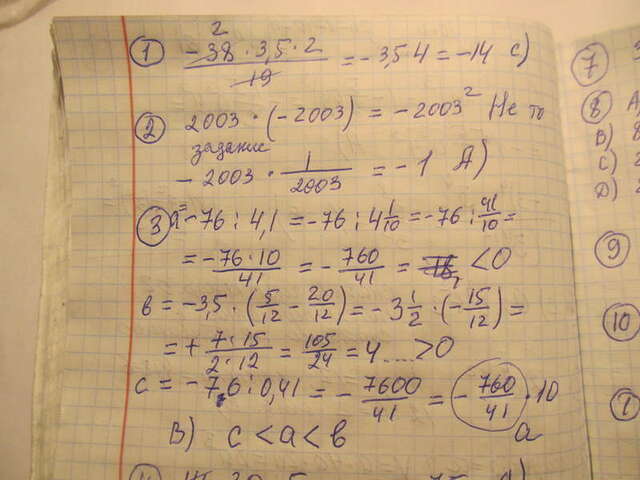 2
① -38 · 3,5 · 2 / 19 = -3,5·4 = -14 C)
② 2003 · (-2003) = -2003² Не то
задание
-2003 · 1/2003 = -1 A)
③ a = -76 : 4,1 = -76 : 4 1/10 = -76 : 41/10 =
= -76·10/41 = -760/41 = <0
в = -3,5 · (5/12 - 20/12) = -3 1/2 · (-15/12) =
= + 7·15/2·12 = 105/24 = 4... >0
c = -7,6 : 0,41 = -7600/41 = -760/41 · 10
a
B) c < a < в
7
8 A
B)
C)
D)
9
10